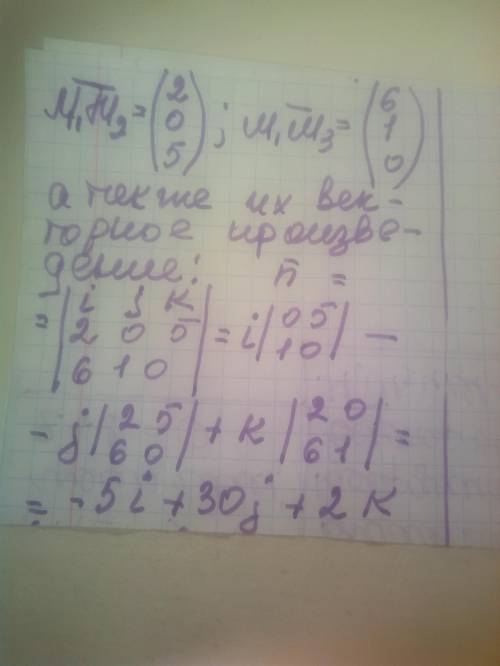 M₁M₂ = (2 0 5) ; M₁M₃ = (6 1 0)
а также их век-
торное произве-
дение: n̄ =
= |i j k; 2 0 5; 6 1 0| = i |0 5; 1 0| −
− j |2 5; 6 0| + k |2 0; 6 1| =
= -5i + 30j + 2k